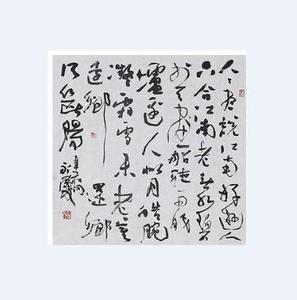 人々盡說江南好遊人
只合江南老春水碧
於天畫船聽雨眠
壚邊人似月皓腕
凝霜雪未老莫
還鄉還鄉
須斷腸